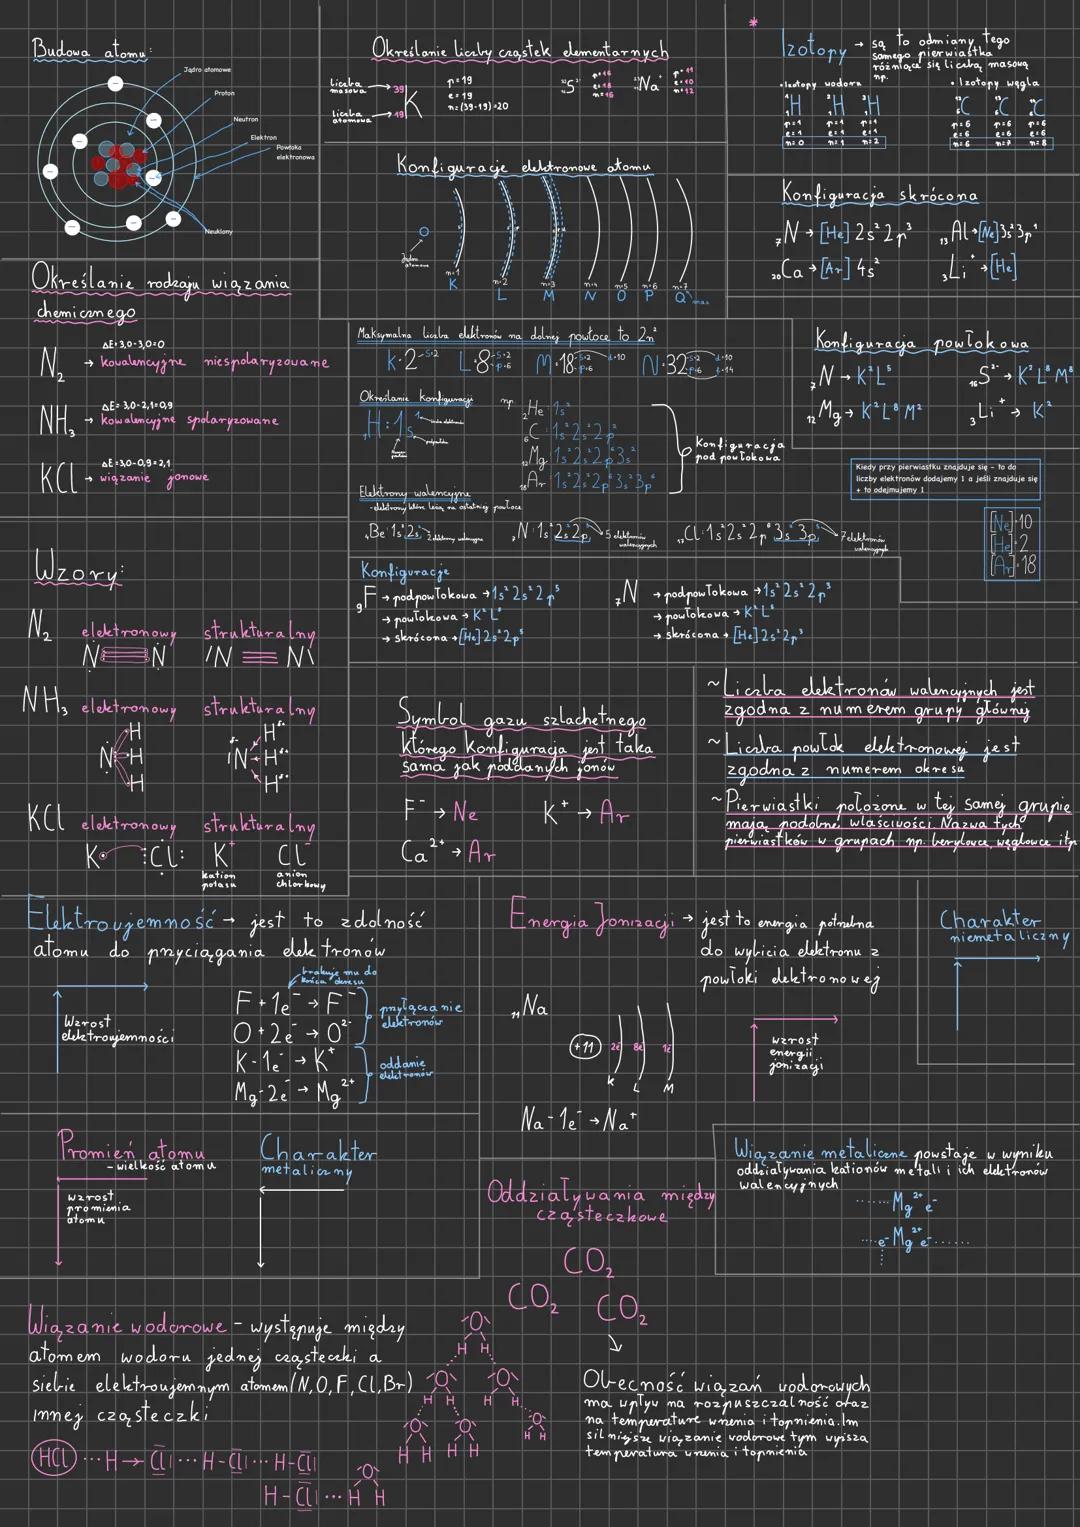 Budowa atomu:
Jądro atomowe
Proton
Neutron
Elektron
Powłoka
elektronowa
Neuklony
Określanie liczby cząstek elementarnych
liczba
masowa → 39
K
liczba
atomowa → 19
p = 19
e = 19
n = (39-19) = 20
S²⁻
p=16
e=18
n=16
Na⁺
p=11
e=10
n=12
*
Izotopy → są to odmiany tego
samego pierwiastka
różniące się liczbą masową
np.
• Izotopy wodoru
¹₁H ²₁H ³₁H
p=1 p=1 p=1
e=1 e=1 e=1
n=0 n=1 n=2
• Izotopy węgla
C C C
p=6 p=6 p=6
e=6 e=6 e=6
n=6 n=7 n=8
Konfiguracje elektronowe atomu
Jądro
atomowe
n=1 n=2 n=3 n=4 n=5 n=6 n=7
K L M N O P Q max
Konfiguracja skrócona
₇N → [He] 2s² 2p³
₁₃Al → [Ne] 3s² 3p¹
₂₀Ca → [Ar] 4s²
₃Li⁺ → [He]
Określanie rodzaju wiązania
chemicznego
ΔE = 3,0-3,0=0
N₂ → kowalencyjne niespolaryzowane
ΔE = 3,0-2,1=0,9
NH₃ → kowalencyjne spolaryzowane
ΔE = 3,0-0,9=2,1
KCl → wiązanie jonowe
Maksymalna liczba elektronów na dolnej powłoce to 2n²
K-2 -s-2
L-8 -s-2 -p-6
M-18 -s-2 -p-6 d-10
N-32 -s-2 -p-6 d-10 f-14
Określanie konfiguracji
₁H: 1s¹
np.
₂He: 1s²
₆C: 1s² 2s² 2p²
₁₂Mg: 1s² 2s² 2p⁶ 3s²
₁₈Ar: 1s² 2s² 2p⁶ 3s² 3p⁶
Konfiguracja
podpowłokowa
Elektrony walencyjne
- elektrony które leżą na ostatniej powłoce
₄Be: 1s² 2s² 2 elektrony walencyjne
₇N: 1s² 2s² 2p³ 5 elektronów
walencyjnych
₁₇Cl: 1s² 2s² 2p⁶ 3s² 3p⁵ 7 elektronów
walencyjnych
Konfiguracja powłokowa
₇N → K² L⁵
₁₆S²⁻ → K² L⁸ M⁸
₁₂Mg → K² L⁸ M²
₃Li⁺ → K²
Kiedy przy pierwiastku znajduje się - to do
liczby elektronów dodajemy 1 a jeśli znajduje się
+ to odejmujemy 1
[Ne]-10
[He]-2
[Ar]-18
Konfiguracje
₉F → podpowłokowa → 1s² 2s² 2p⁵
→ powłokowa → K² L⁷
→ skrócona → [He] 2s² 2p⁵
₇N → podpowłokowa → 1s² 2s² 2p³
→ powłokowa → K² L⁵
→ skrócona → [He] 2s² 2p³
Wzory:
N₂ elektronowy strukturalny
N N N N
NH₃ elektronowy strukturalny
N H H H
N H H H
KCl elektronowy strukturalny
K Cl K⁺ Cl⁻
kation
potasu
anion
chlorkowy
Symbol gazu szlachetnego
którego konfiguracja jest taka
sama jak poddanych jonów
F⁻ → Ne K⁺ → Ar
Ca²⁺ → Ar
~ Liczba elektronów walencyjnych jest
zgodna z numerem grupy głównej
~ Liczba powłok elektronowej jest
zgodna z numerem okresu
~ Pierwiastki położone w tej samej grupie
mają podobne właściwości. Nazwa tych
pierwiastków w grupach np. berylowce, węglowce itp
Elektroujemność → jest to zdolność
atomu do przyciągania elektronów
brakuje mu do
końca okresu
Wzrost
elektroujemności
F + 1e⁻ → F⁻
O + 2e⁻ → O²⁻
przyłączanie
elektronów
K - 1e⁻ → K⁺
Mg - 2e⁻ → Mg²⁺
oddanie
elektronów
Energia Jonizacji → jest to energia potrzebna
do wybicia elektronu z
powłoki elektronowej
₁₁Na
+11 2e⁻ 8e⁻ 1e⁻
K L M
Na - 1e⁻ → Na⁺
wzrost
energii
jonizacji
Charakter
niemetaliczny
Promień atomu
- wielkość atomu
wzrost
promienia
atomu
Charakter
metaliczny
Oddziaływania między
cząsteczkowe
CO₂
CO₂ CO₂
Wiązanie metaliczne powstaje w wyniku
oddziaływania kationów metali i ich elektronów
walencyjnych
Mg²⁺ e⁻
e⁻ Mg²⁺ e⁻
Wiązanie wodorowe - występuje między
atomem wodoru jednej cząsteczki a
siebie elektroujemnym atomem (N,O,F,Cl,Br)
innej cząsteczki
HCl ··· H → Cl ··· H - Cl ··· H - Cl
H - Cl ··· H O H
O
H H
O O
H H H H
O O O
H H H H H H
Obecność wiązań wodorowych
ma wpływ na rozpuszczalność oraz
na temperature wrzenia i topnienia. Im
silniejsze wiązanie wodorowe tym wyższa
temperatura wrzenia i topnienia